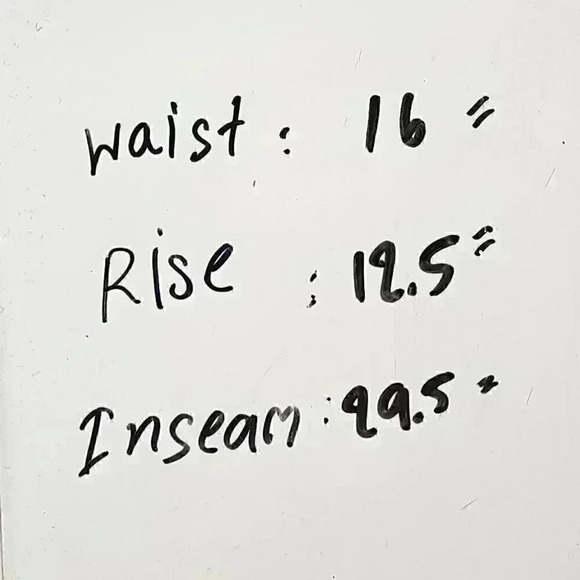 Waist : 16"
Rise : 12.5"
Inseam : 29.5"